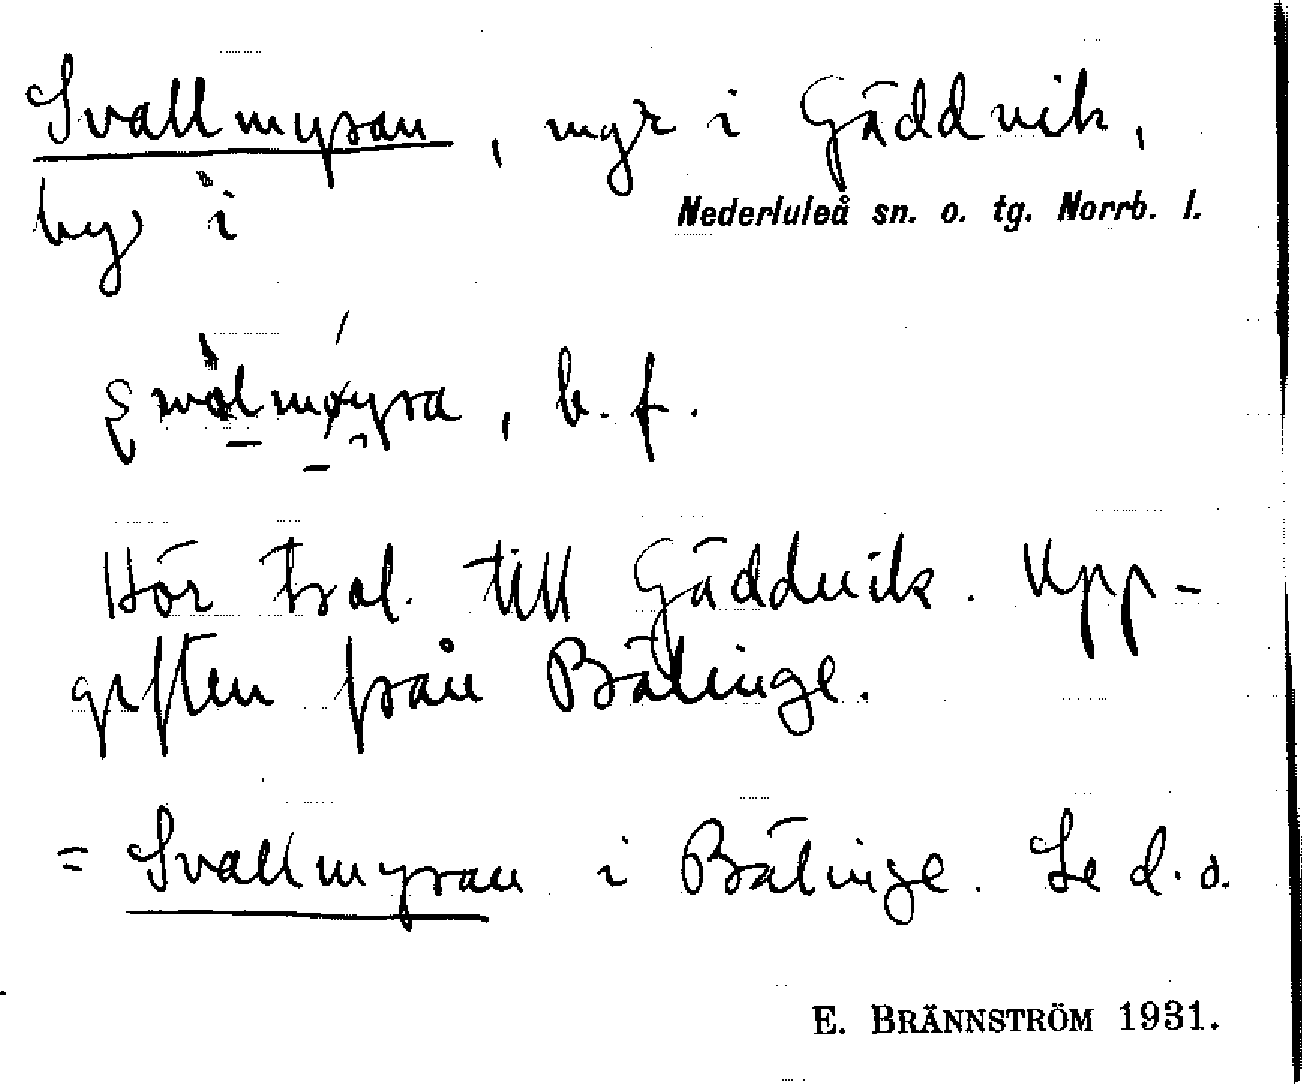 Svallmyran, myr i Gäddvik,
by i Nederluleå sn. o. tg. Norrb. l.
, b. f.
Hör trol. till Gäddvik. Upp-
giften från Bälinge.
= Svallmyran i Bälinge. Se d. o.
E. BRÄNNSTRÖM 1931.